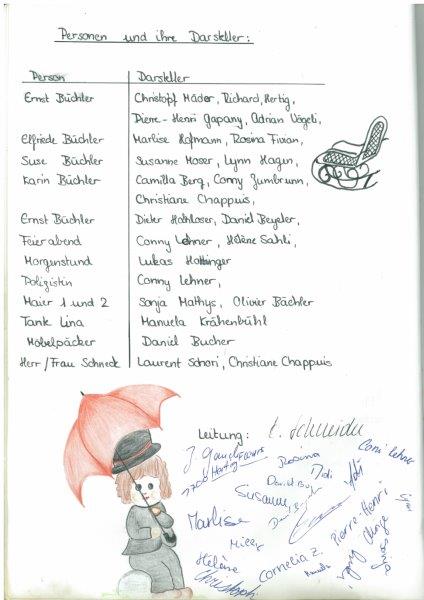 Personen und ihre Darsteller:
Person Darsteller
Ernst Büchler Christoph Mäder, Richard Hertig,
Pierre-Henri Gapany, Adrian Vögeli,
Elfriede Büchler Marlise Hofmann, Rosina Fivian,
Suse Büchler Susanne Moser, Lynn Hagen,
Karin Büchler Camilla Berg, Conny Zumbrunn,
Christiane Chappuis,
Ernst Büchler Dieter Hohloser, Daniel Beyeler,
Feierabend Conny Lehner, Hélène Sahli,
Morgenstund Lukas Hottinger
Polizistin Conny Lehner,
Maier 1 und 2 Sonja Mathys, Olivier Bächler
Tank Lina Manuela Krähenbühl
Möbelpäcker Daniel Bucher
Herr/Frau Schneck Laurent Schori, Christiane Chappuis
Leitung: Schneider
Rosina
Coni Lehner
Susanne
Marlise
Pierre-Henri
Milly
Hélène
Cornelia Z.
Christoph